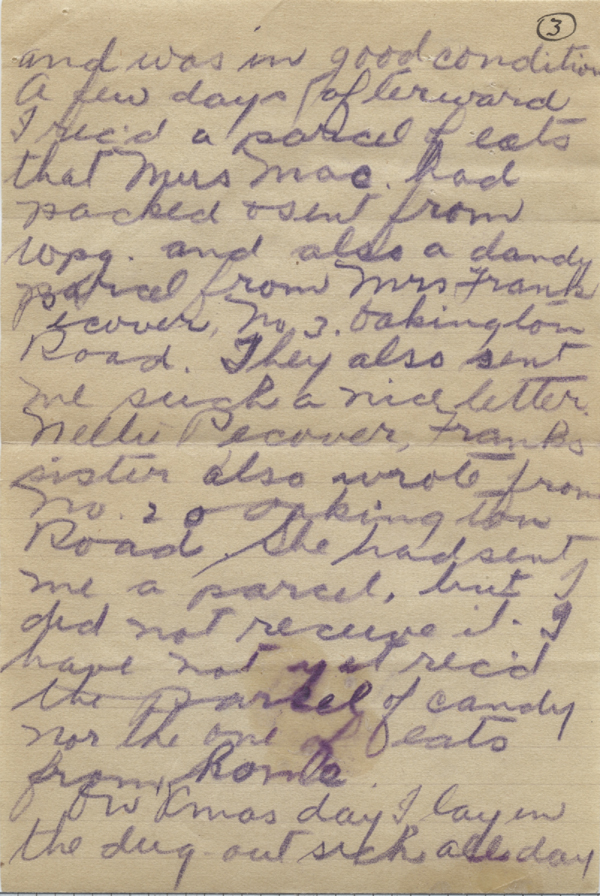 3
and was in good condition
A few days afterward
I rec'd a parcel of eats
that Mrs Mac. had
packed & sent from
Wpg. and also a dandy
parcel from Mrs Frank
Pecover, No 3. Oakington
Road. They also sent
me such a nice letter.
Nellie Pecover, Franks
sister also wrote from
No. 20 Oakington
Road. She had sent
me a parcel, but I
did not receive it. I
have not yet rec'd
the parcel of candy
nor the one of eats
from home.
On Xmas day I lay in
the dug-out sick all day